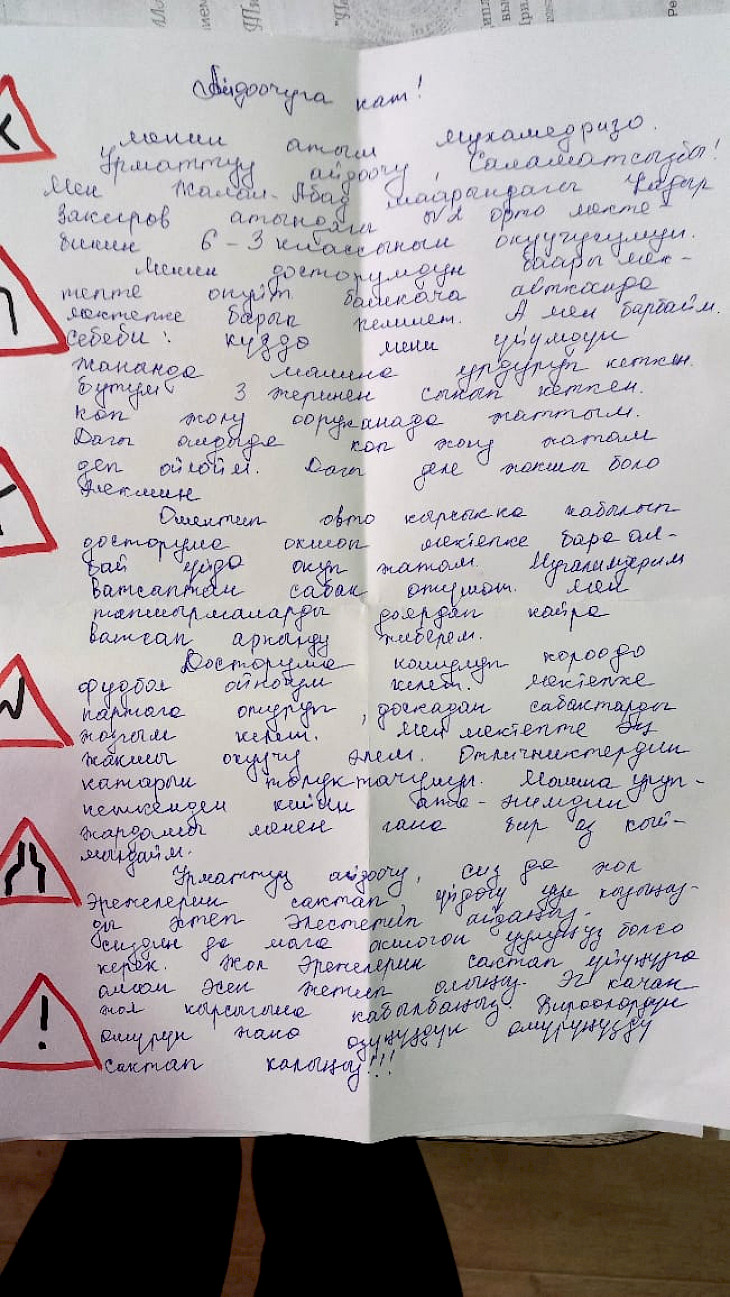 Айдоочуга кат!
менин атым Мухамедризо.
Урматтуу айдоочу, Саламатсызбы!
Мен Жалал-Абад шаарындагы Кадыр
Закиров атындагы №2 орто мекте-
бинин 6-3 классынын окуучусумун.
Менин досторумдун баары мек-
тепте окуйт башкача айтканда
мектепке барып келишет. А мен барбайм.
Себеби: куздо мени уйумдун
жанында машина урдуруп кеткен.
Бутум 3 жеринен сынып кеткен.
Коп жолу ооруканада жаттым.
Дагы алдыда коп жолу жатам
деп ойлойм. Дагы деле жакшы боло
элекмин
Ошентип авто кырсыкка кабылып
досторума окшоп мектепке бара ал-
бай уйдо окуп жатам. Мугалимдерим
ватсаптан сабак отушот. Мен
тапшырмаларды даярдап кайра
ватсап аркылуу жиберем.
Досторума кошулуп короодо
фудбол ойногум келет. Мектепке
партага отуруп, доскадан сабактарды
жазгым келет. Мен мектепте эң
жакшы окуучу элем. Отличниктердин
катарын толуктачумун. Машина уруп-
кеткенден кийин ата-энемдин
жардамы менен гана бир аз кый-
мылдайм.
Урматтуу айдоочу, сиз да жол
эрежелерин сактап, уйдогу уул кызыңыз-
ды эстеп элестетип айдаңыз.
Сиздин да мага окшогон уулуңуз болсо
керек. Жол эрежелерин сактап уйуңузго
аман эсен жетип алыңыз. Эч качан
жол кырсыгына кабылбаңыз. Бироолордун
омурун жана озуңуздун омуруңузду
сактап калыңыз!!!